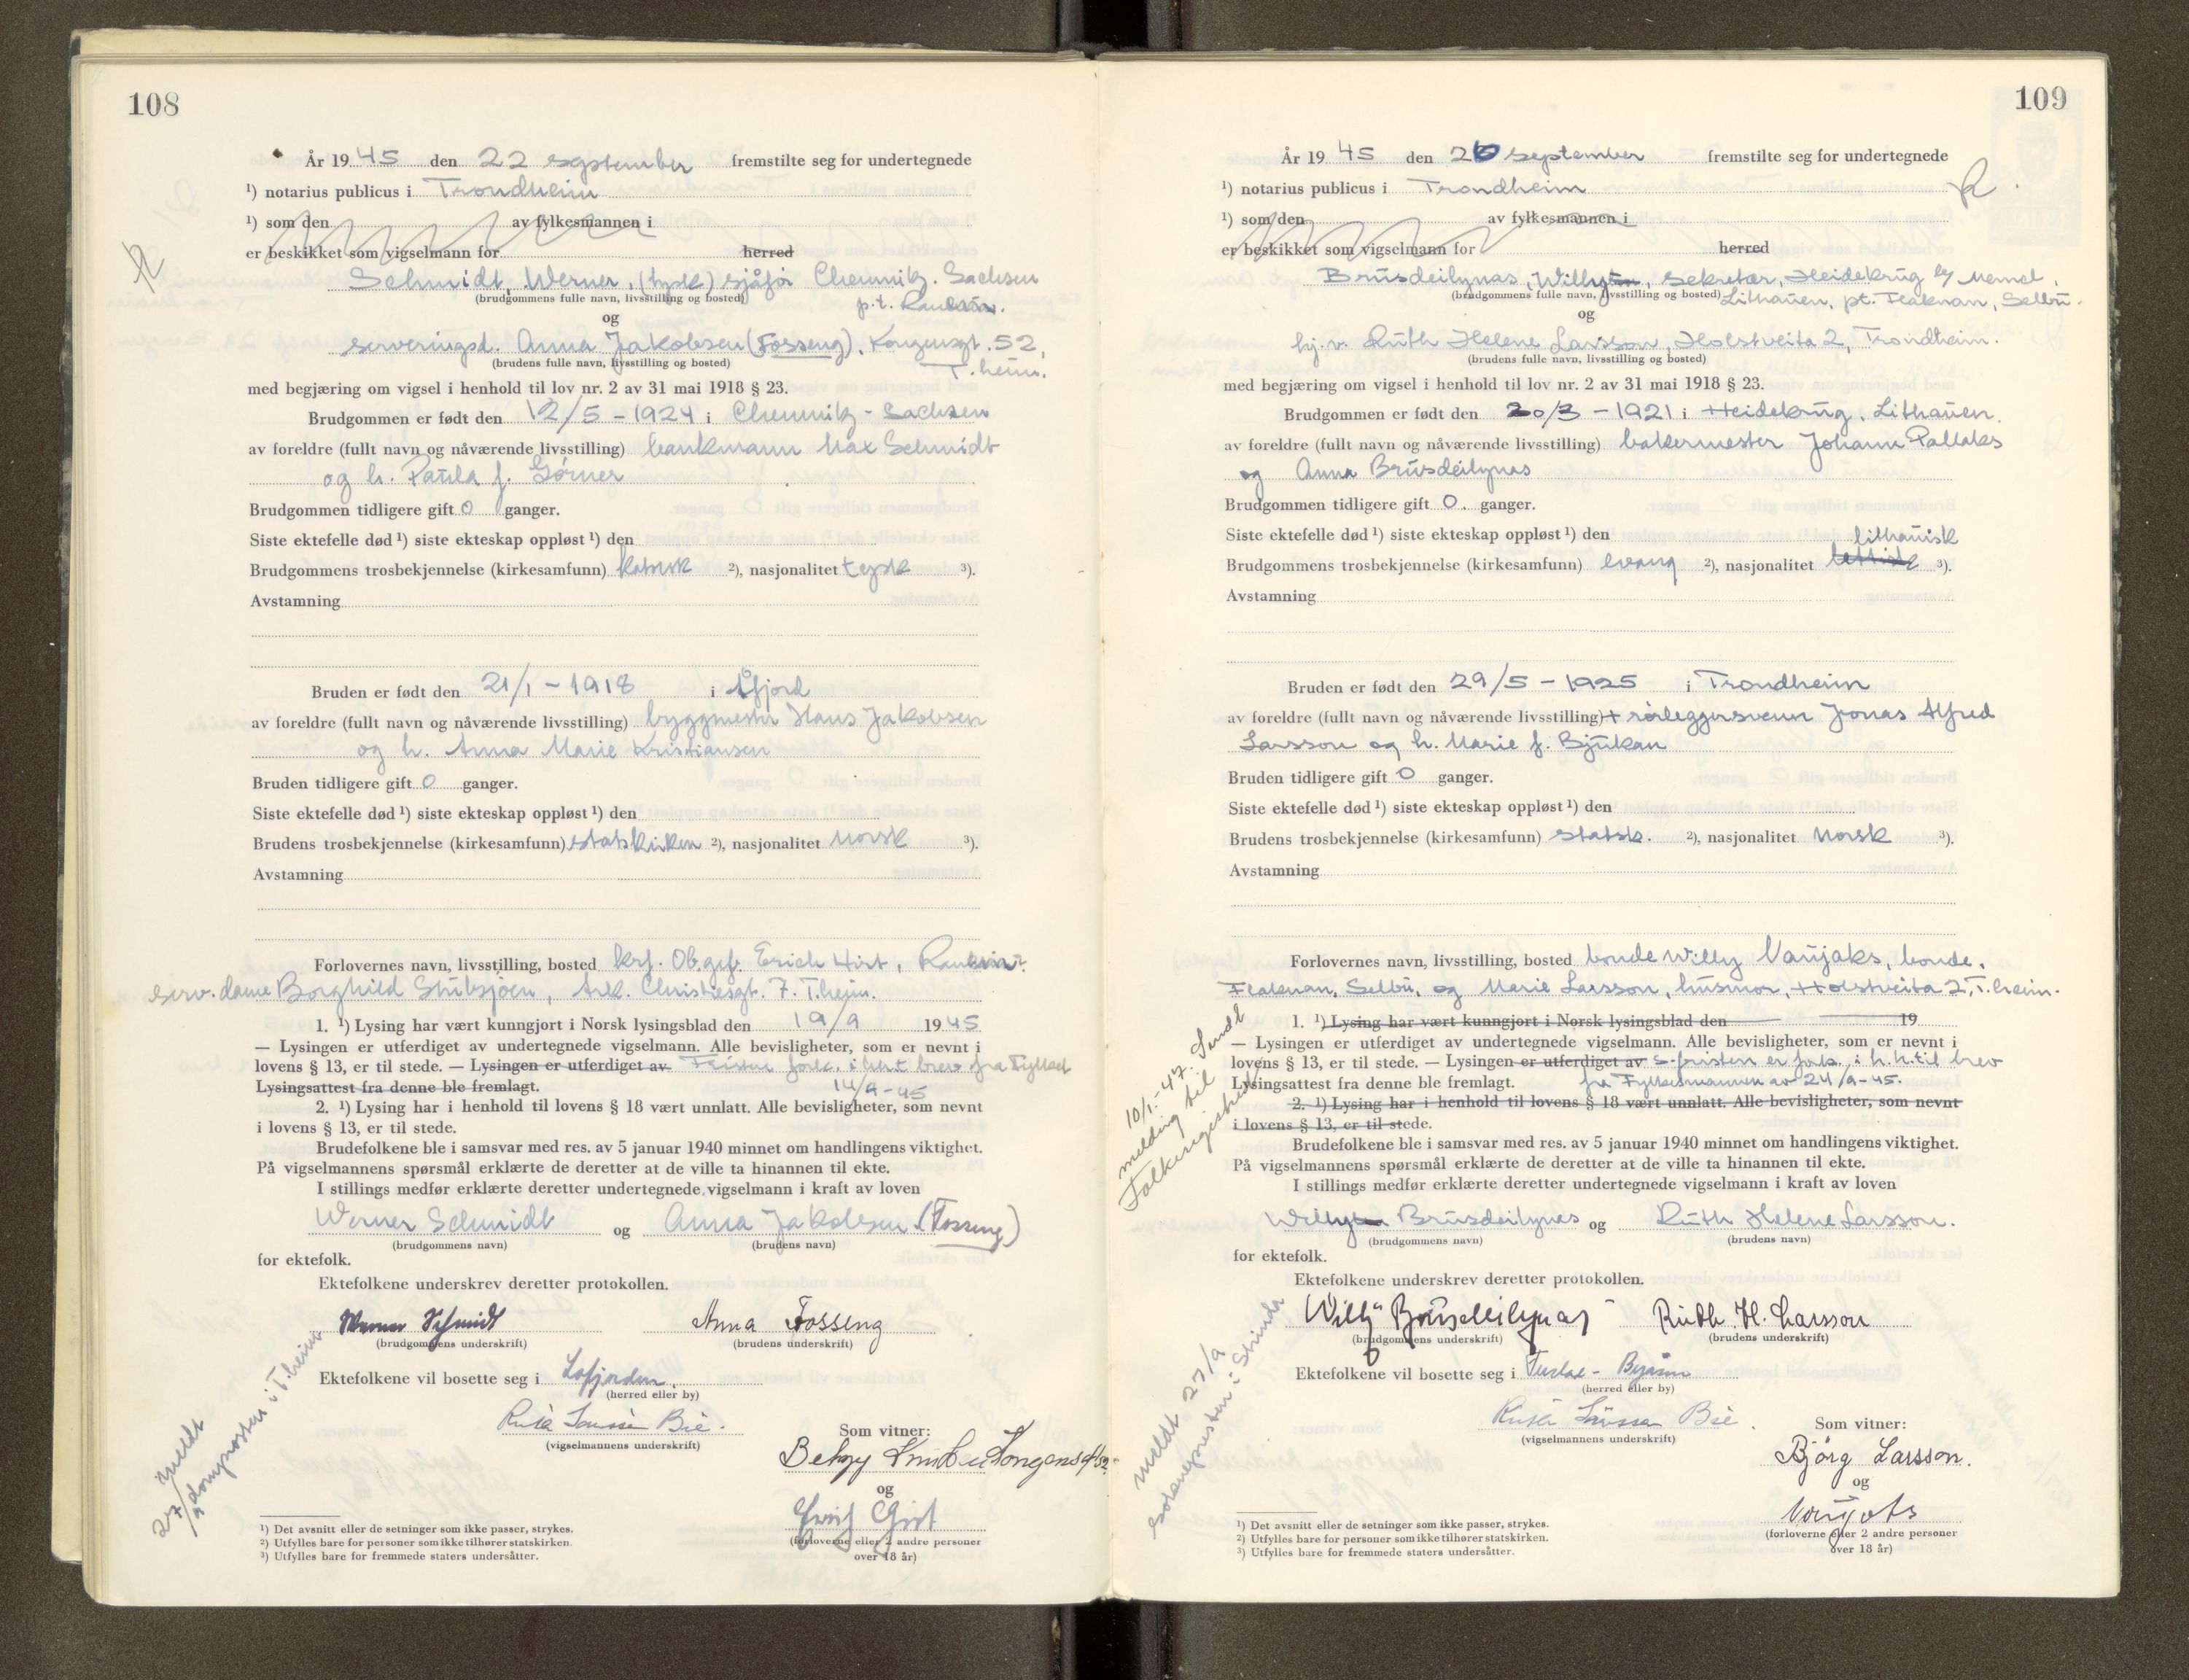 108
År 1945 den 22 september fremstilte seg for undertegnede
¹) notarius publicus i Trondheim
¹) som den av fylkesmannen i
er beskikket som vigselmann for herred
Schmidt, Werner, (tysk) sjåfør Chemnitz. Sachsen
(brudgommens fulle navn, livsstilling og bosted)
p.t.
og
serveringsd. Anna Jakobsen (Fosseng), Kongensgt. 52,
(brudens fulle navn, livsstilling og bosted)
T.heim.
med begjæring om vigsel i henhold til lov nr. 2 av 31 mai 1918 § 23.
Brudgommen er født den 12/5 - 1924 i Chemnitz - Sachsen
av foreldre (fullt navn og nåværende livsstilling) bankmann Max Schmidt
og h. Paula f. Görner
Brudgommen tidligere gift 0 ganger.
Siste ektefelle død ¹) siste ekteskap oppløst ¹) den
Brudgommens trosbekjennelse (kirkesamfunn) katolsk ²), nasjonalitet tysk ³).
Avstamning
Bruden er født den 21/1 - 1918 i Åfjord
av foreldre (fullt navn og nåværende livsstilling) byggmester Hans Jakobsen
og h. Anna Marie Kristiansen
Bruden tidligere gift 0 ganger.
Siste ektefelle død ¹) siste ekteskap oppløst ¹) den
Brudens trosbekjennelse (kirkesamfunn) statskirken ²), nasjonalitet norsk ³).
Avstamning
Forlovernes navn, livsstilling, bosted krf. Ob.gefr. Erich Hirt,
serv. dame Borghild Stubsjøen, Ark. Christiesgt. 7. T.heim.
1. ¹) Lysing har vært kunngjort i Norsk lysingsblad den 19/9 1945
— Lysingen er utferdiget av undertegnede vigselmann. Alle bevisligheter, som er nevnt i
lovens § 13, er til stede. — Lysingen er utferdiget av Fristen fork. i hht brev fra Fylket
Lysingsattest fra denne ble fremlagt. 14/9-45
2. ¹) Lysing har i henhold til lovens § 18 vært unnlatt. Alle bevisligheter, som nevnt
i lovens § 13, er til stede.
Brudefolkene ble i samsvar med res. av 5 januar 1940 minnet om handlingens viktighet.
På vigselmannens spørsmål erklærte de deretter at de ville ta hinannen til ekte.
I stillings medfør erklærte deretter undertegnede vigselmann i kraft av loven
Werner Schmidt og Anna Jakobsen (Fosseng)
(brudgommens navn) (brudens navn)
for ektefolk.
Ektefolkene underskrev deretter protokollen.
Werner Schmidt Anna Fosseng
(brudgommens underskrift) (brudens underskrift)
Ektefolkene vil bosette seg i Lofjorden.
(herred eller by)
Bie.
(vigselmannens underskrift)
Som vitner:
Kongensgt 52
og
Erich Hirt
(forloverne eller 2 andre personer
over 18 år)
meldt
27/9 domprosten i T.heim
¹) Det avsnitt eller de setninger som ikke passer, strykes.
²) Utfylles bare for personer som ikke tilhører statskirken.
³) Utfylles bare for fremmede staters undersåtter.
109
År 1945 den 26 september fremstilte seg for undertegnede
¹) notarius publicus i Trondheim
¹) som den av fylkesmannen i
er beskikket som vigselmann for herred
Brusdeilynas, Willy, sekretær, Heidekrug by Memel,
(brudgommens fulle navn, livsstilling og bosted) Lithauen, pt. Flaknan, Selbu.
og
hj.v. Ruth Helene Larsson, Holstveita 2, Trondheim.
(brudens fulle navn, livsstilling og bosted)
med begjæring om vigsel i henhold til lov nr. 2 av 31 mai 1918 § 23.
Brudgommen er født den 20/3 - 1921 i Heidekrug. Lithauen.
av foreldre (fullt navn og nåværende livsstilling) bakermester Johann Pallaks
og Anna Brusdeilynas
Brudgommen tidligere gift 0. ganger.
Siste ektefelle død ¹) siste ekteskap oppløst ¹) den
lithauisk
Brudgommens trosbekjennelse (kirkesamfunn) evang ²), nasjonalitet lettisk ³).
Avstamning
Bruden er født den 29/5 - 1925 i Trondheim
av foreldre (fullt navn og nåværende livsstilling) + rørleggersvenn Jonas Alfred
Larsson og h. Marie f. Bjukan
Bruden tidligere gift 0 ganger.
Siste ektefelle død ¹) siste ekteskap oppløst ¹) den
Brudens trosbekjennelse (kirkesamfunn) statsk. ²), nasjonalitet norsk ³).
Avstamning
Forlovernes navn, livsstilling, bosted bonde Willy Naujaks, bonde,
Flaknan, Selbu, og Marie Larsson, husmor, Holstveita 2, T.heim.
1. ¹) Lysing har vært kunngjort i Norsk lysingsblad den 19
— Lysingen er utferdiget av undertegnede vigselmann. Alle bevisligheter, som er nevnt i
lovens § 13, er til stede. — Lysingen er utferdiget av s-fristen er fork. i h.h.til brev
Lysingsattest fra denne ble fremlagt. fra Fylkesmannen av 24/9-45.
2. ¹) Lysing har i henhold til lovens § 18 vært unnlatt. Alle bevisligheter, som nevnt
i lovens § 13, er til stede.
Brudefolkene ble i samsvar med res. av 5 januar 1940 minnet om handlingens viktighet.
På vigselmannens spørsmål erklærte de deretter at de ville ta hinannen til ekte.
I stillings medfør erklærte deretter undertegnede vigselmann i kraft av loven
Willy Brusdeilynas og Ruth Helene Larsson.
(brudgommens navn) (brudens navn)
for ektefolk.
Ektefolkene underskrev deretter protokollen.
Willy Brusdeilynas Ruth H. Larsson
(brudgommens underskrift) (brudens underskrift)
Ektefolkene vil bosette seg i
(herred eller by)
Bie.
(vigselmannens underskrift)
Som vitner:
Bjørg Larsson.
og
Naujoks
(forloverne eller 2 andre personer
over 18 år)
10/1.-47. Sendt
melding til
Folkeregisteret
meldt 27/9
soknepresten i Strinda
¹) Det avsnitt eller de setninger som ikke passer, strykes.
²) Utfylles bare for personer som ikke tilhører statskirken.
³) Utfylles bare for fremmede staters undersåtter.